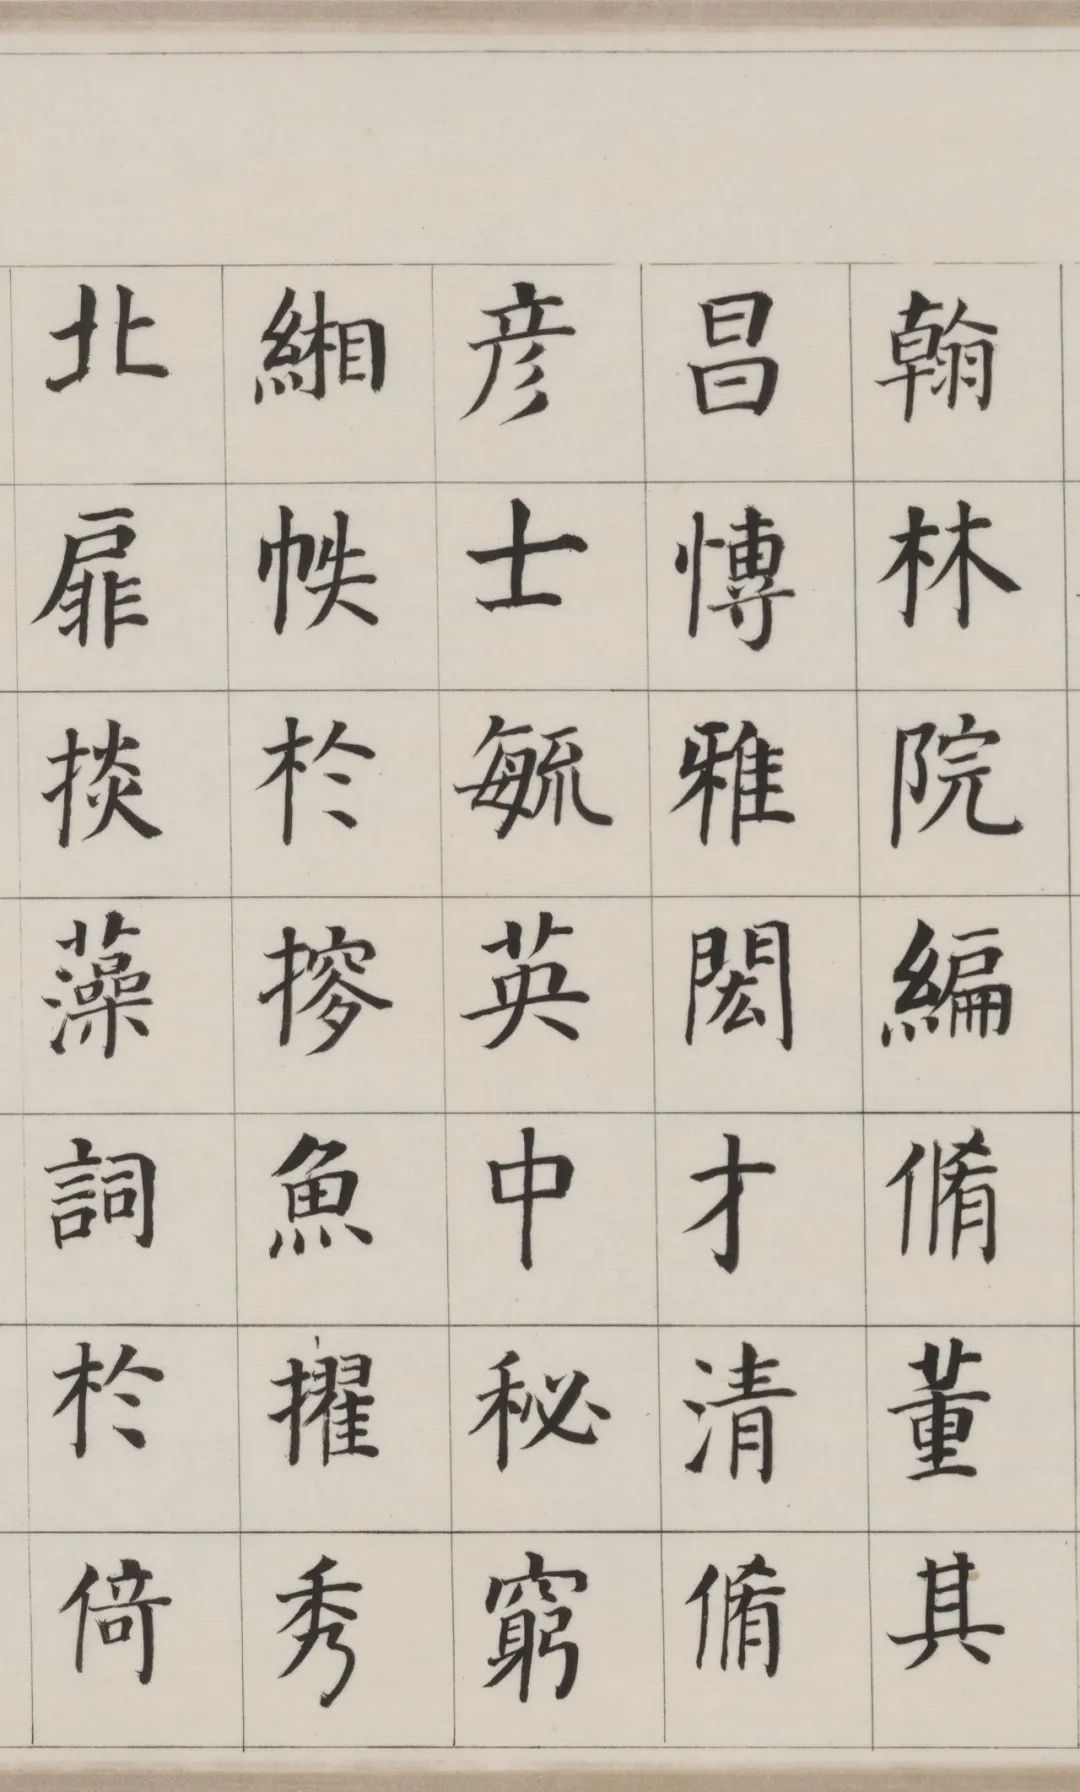 翰林院編脩董其
昌愽雅閎才清脩
彦士毓英中秘窮
緗帙於摎魚擢秀
北扉掞藻詞於倚